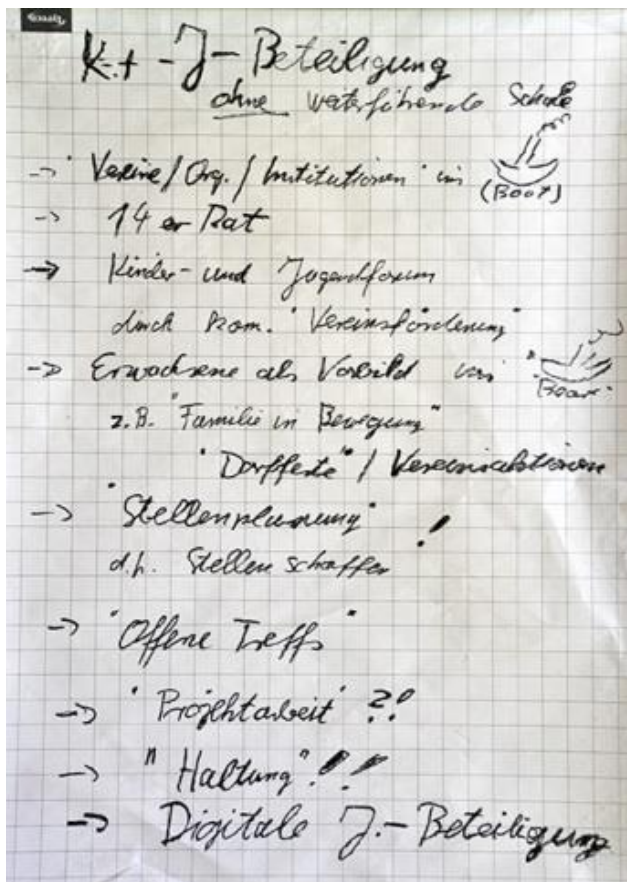 K.+-J-Beteiligung
ohne weiterführende Schule
-> "Vereine/Org./Institutionen" im
(Boot)
-> 14er Rat
-> Kinder- und Jugendforum
durch kom. "Vereinsförderung"
-> Erwachsene als Vorbild im
"Boot"
z.B. "Familie in Bewegung"
"Dorffeste" / Vereinsaktionen
-> "Stellenplanung" !
d.h. Stellen schaffen
-> "Offene Treffs"
-> "Projektarbeit" ?!
-> "Haltung" !!
-> Digitale J.-Beteiligung